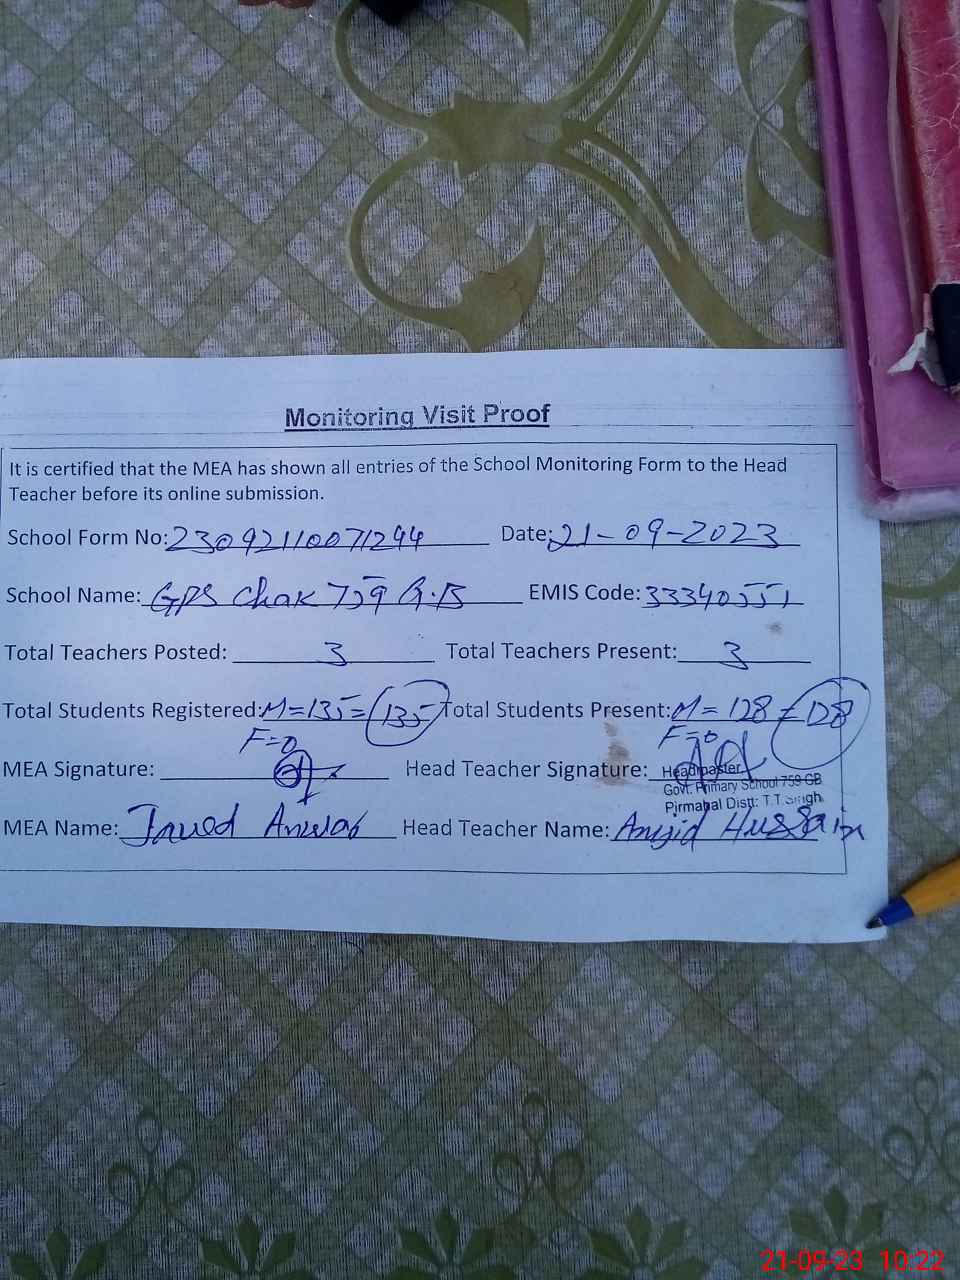 Monitoring Visit Proof
It is certified that the MEA has shown all entries of the School Monitoring Form to the Head
Teacher before its online submission.
School Form No: 23092110071244 Date: 21-09-2023
School Name: GPS Chak 759 G.B EMIS Code: 33340551
Total Teachers Posted: 3 Total Teachers Present: 3
Total Students Registered: M=135=135 Total Students Present: M=128=128
F=0 F=0
MEA Signature: Head Teacher Signature:
Headmaster
Govt: Primary School 759 GB
Pirmahal Distt: T.T.Singh
MEA Name: Javed Anwar Head Teacher Name: Amjid Hussain
21-09-23 10:22